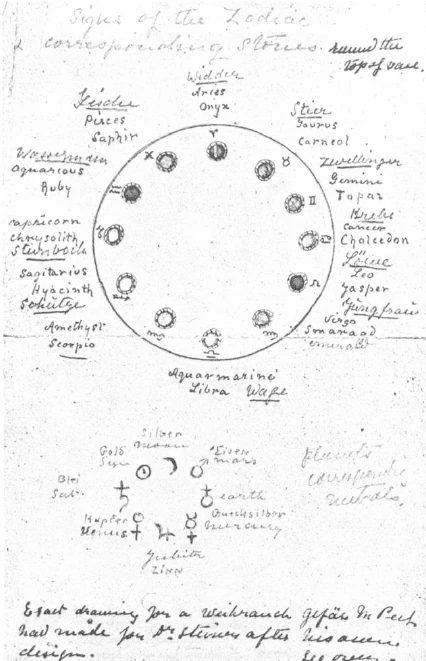 Signs of the Zodiac
corresponding Stones. round the
top of vase.
Widder
Aries
Onyx
Fische
Pisces
Saphir
Stier
Taurus
Carneol
Wassermann
Aquarious
Ruby
Zwillinger
Gemini
Topaz
Krebs
Cancer
Chalcedon
capricorn
chrysolith
Steinbock
Löwe
Leo
Jasper
Sagitarius
Hyacinth
Schütze
Jüngfrau
Virgo
Smaragd
emerald
Amethyst
Scorpio
Aquarmarine
Libra Wage
Silber
moon
Gold
Sun
Eisen
mars
Blei
Sat.
earth
Kupfer
Venus
Quecksilber
mercury
Jupiter
Zinn
planets
corresponding
metals.
Exact drawing for a Weihrauch gefäss M Peet
had made for Dr Steiner after his own
design.